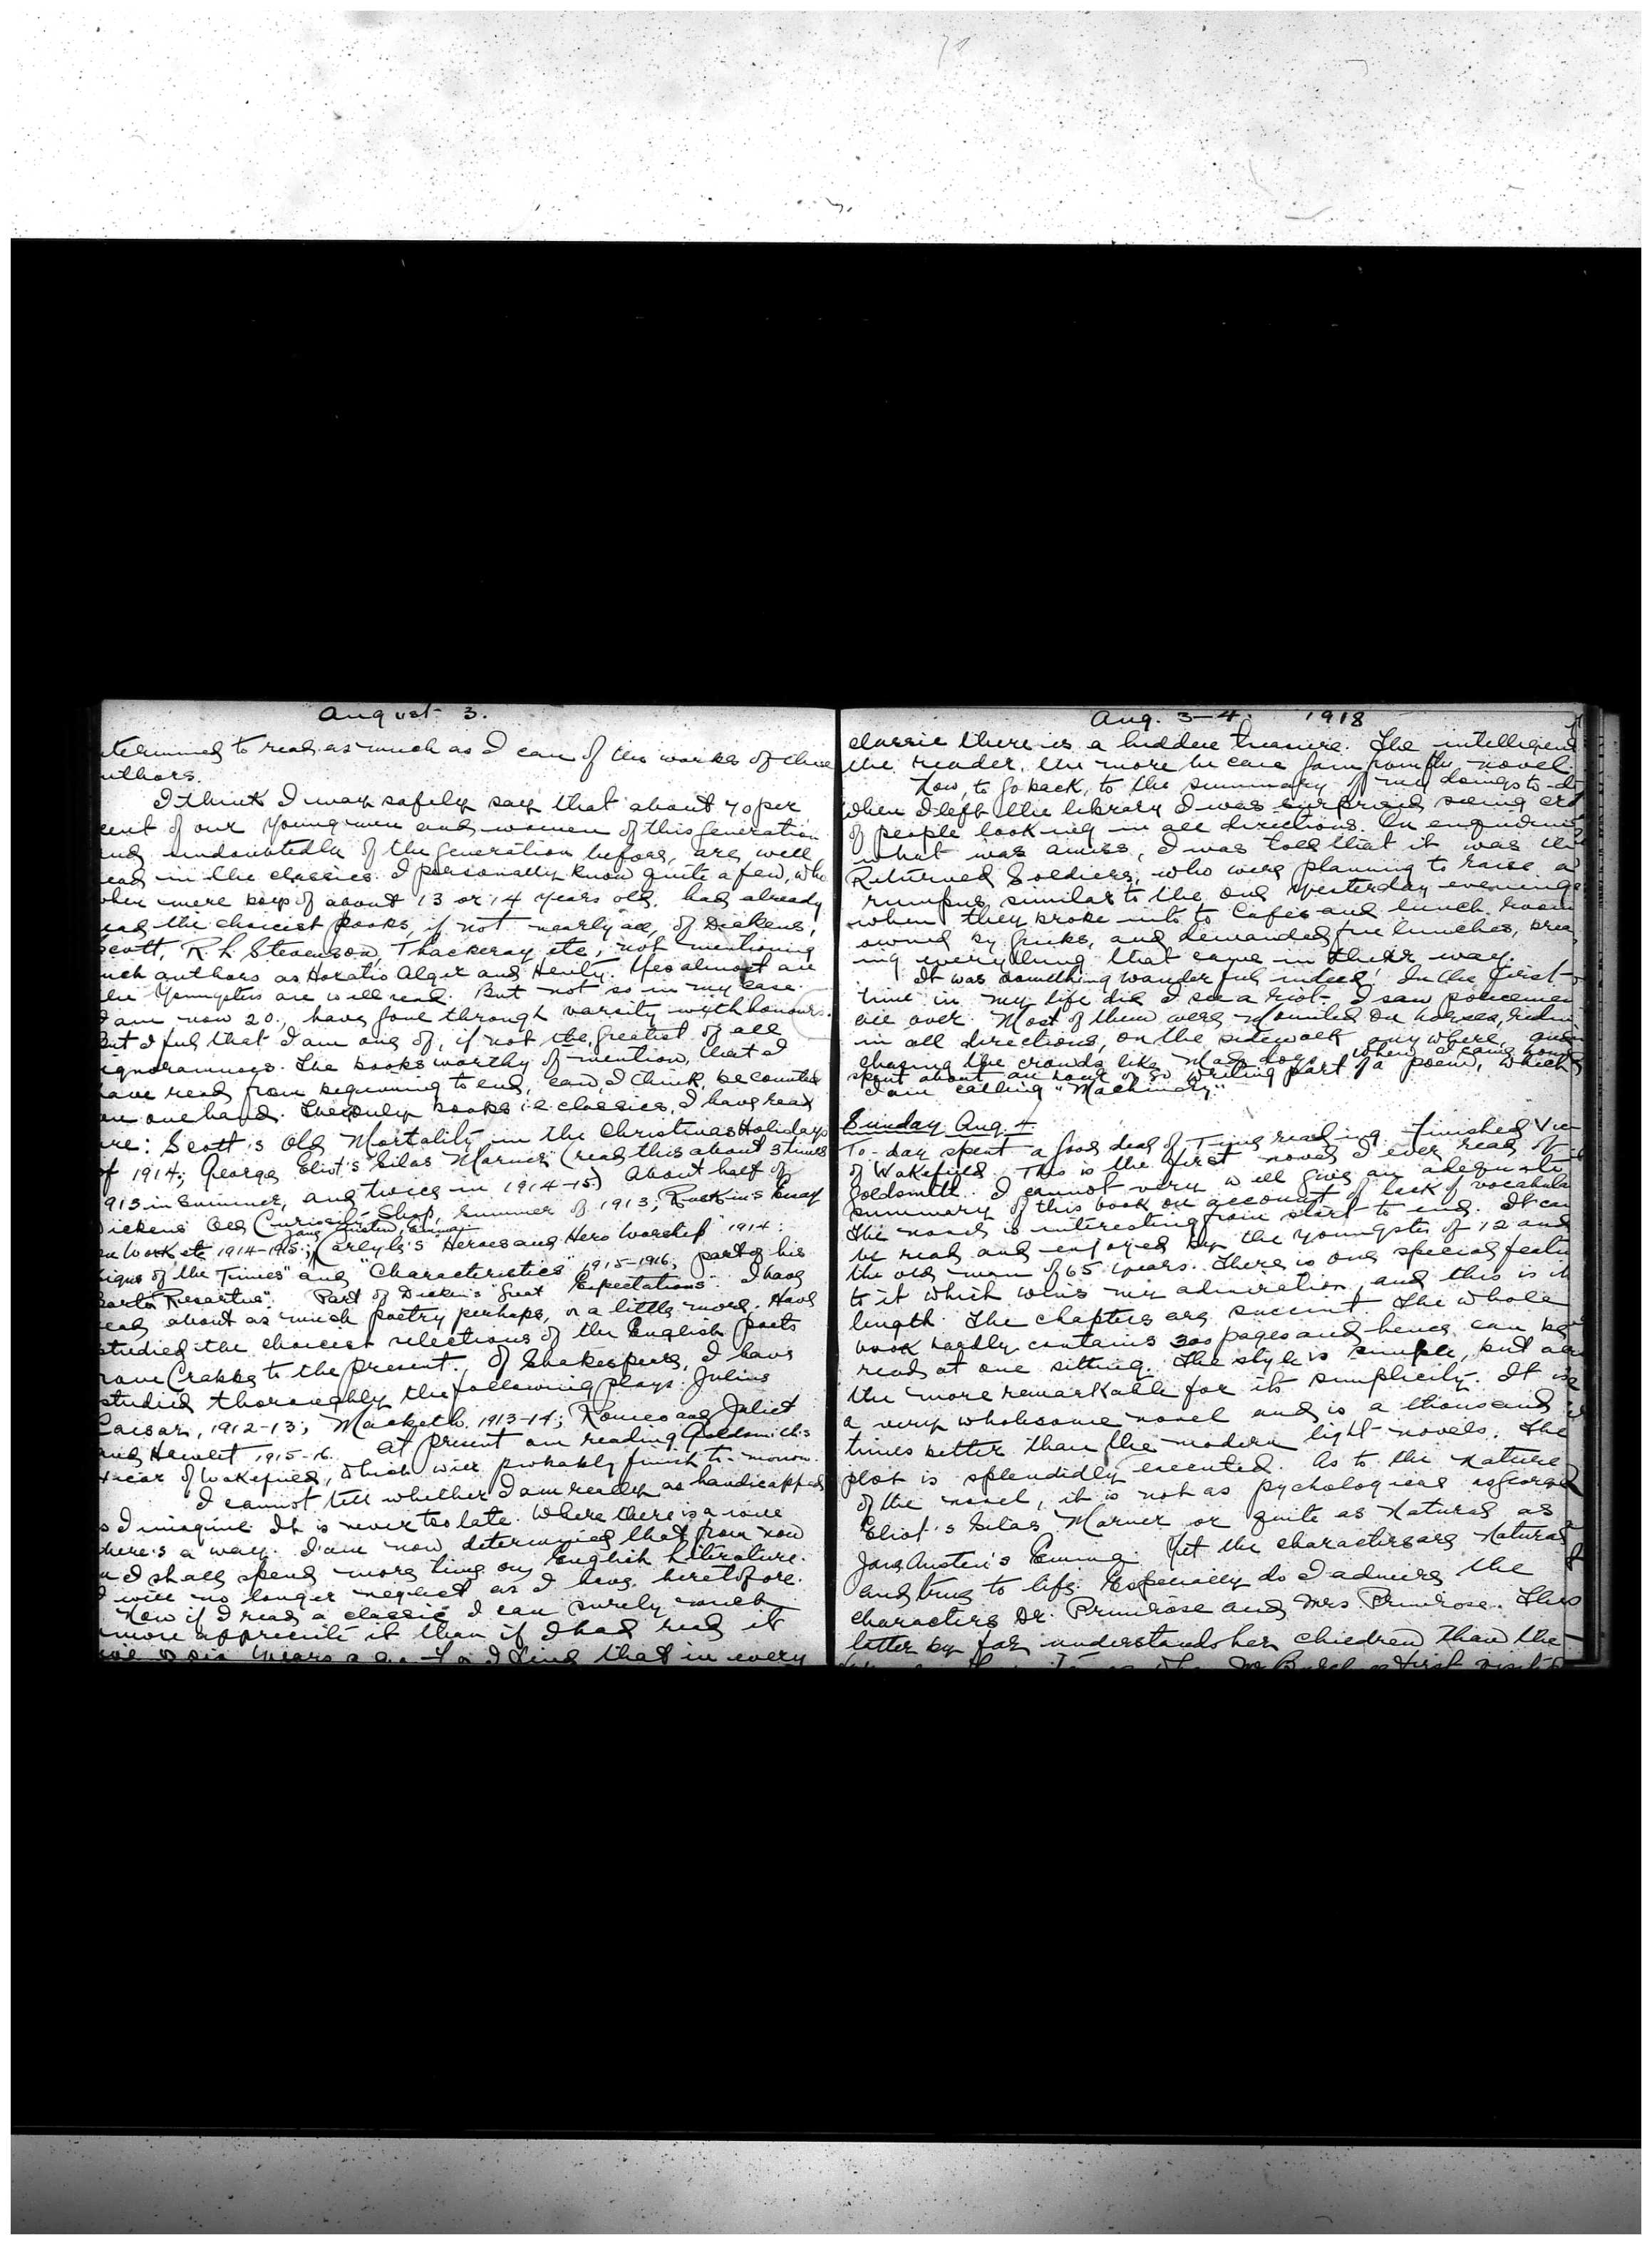 August 3.
termined to read as much as I can of the works of these
uthors.
I think I may safely say that about 70 per
cent of our young men and women of this generation
and undoubtedly of the generation before, are well
ead in the classics. I personally know quite a few, who
when mere boys of about 13 or 14 years old, had already
ead the choicest books, if not nearly all, of Dickens,
Scott, R L Stevenson, Thackeray etc, not mentioning
uch authors as Horatio Alger and Henty. Yes almost all
the youngsters are well read. But not so in my case.
I am now 20, have gone through varsity with honours.
But I feel that I am one of, if not the greatest of all
ignoramuses. The books worthy of mention, that I
have read from beginning to end, can, I think, be counted
on one hand. The only books i.e classics, I have read
are: Scott's Old Mortality in the Christmas Holidays
of 1914; George Eliot's Silas Marner (read this about 3 times
1913 in Summer, and twice in 1914-15) About half of
Dickens' Old Curiosity Shop, Summer of 1913; Ruskin's Essay
Jane Austen, Emma
on Work etc 1914-1915; Carlyle's Heroes and Hero Worship 1914:
Signs of the Times" and "Characteristics" 1915-1916, part of his
Sartor Resartus". Part of Dicken's "Great Expectations". I have
read about as much poetry perhaps, or a little more. Have
studied the choicest selections of the English poets
rom Crabbe to the present. Of Shakespeare, I have
studied thoroughly the following plays: Julius
Caesar, 1912-13; Macbeth 1913-14; Romeo and Juliet
and Hamlet 1915-16. At present am reading Goldsmith's
Vicar of Wakefield, which will probably finish to-morrow.
I cannot tell whether I am really as handicapped
as I imagine. It is never too late. Where there is a will
there's a way. I am now determined that from now
on I shall spend more time on English Literature.
I will no longer neglect as I have heretofore.
Now if I read a classic I can surely much
more appreciate it than if I had read it
five or six years ago. For I find that in every
Aug. 3-4. 1918
classic there is a hidden treasure. The intelligent
the reader, the more he can gain from the novel.
Now, to go back, to the summary of my doings to-d
When I left the library I was surprised seeing cro
of people looking in all directions. On enquiring
what was amiss, I was told that it was the
Returned Soldiers, who were planning to raise a
rumpus similar to the one yesterday evening
when they broke into to Cafes and lunch rooms
owned by Greeks, and demanded free lunches, brea
ing everything that came in their way.
It was something wonderful indeed! In the first
time in my life did I see a riot. I saw policemen
all over. Most of them were mounted on horses, ridin
in all directions, on the sidewalk anywhere, and
chasing the crowds like mad dogs. When I came home
spent about an hour or so writing part of a poem, which
I am calling "Machinery."
Sunday Aug. 4
To-day spent a good deal of Time reading. Finished Vic
of Wakefield. This is the first novel I ever read of
Goldsmith. I cannot very well give an adequate
summary of this book on account of lack of vocabula
The novel is interesting from start to end. It can
be read and enjoyed by the youngster of 12 and
the old man of 65 years. There is one special featu
to it which wins my admiration, and this is it
length. The chapters are succint. The whole
book hardly contains 300 pages and hence can be
read at one sitting. The style is simple, but all
the more remarkable for its simplicity. It is
a very wholesome novel and is a thousand
times better than the modern light novels. The
plot is splendidly executed. As to the nature
of the novel, it is not as psychological as George
Eliot's Silas Marner or quite as natural as
Jane Austen's Emma. Yet the characters are natural
and true to life. Especially do I admire the
characters Dr. Primrose and Mrs Primrose. The
latter by far understands her children than the